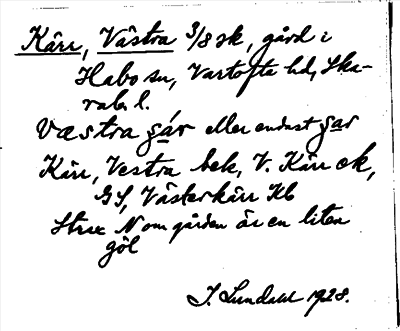 Kärr, Västra 3/8 sk, gård i
Habo sn, Vartofta hd, Ska-
rab. l.
væstra ɕár eller endast ɕar
Kärr, Vestra bek, V. Kärr ek,
GS, Västerkärr Hb
Strax N om gården är en liten
göl
J. Lundahl 1928.